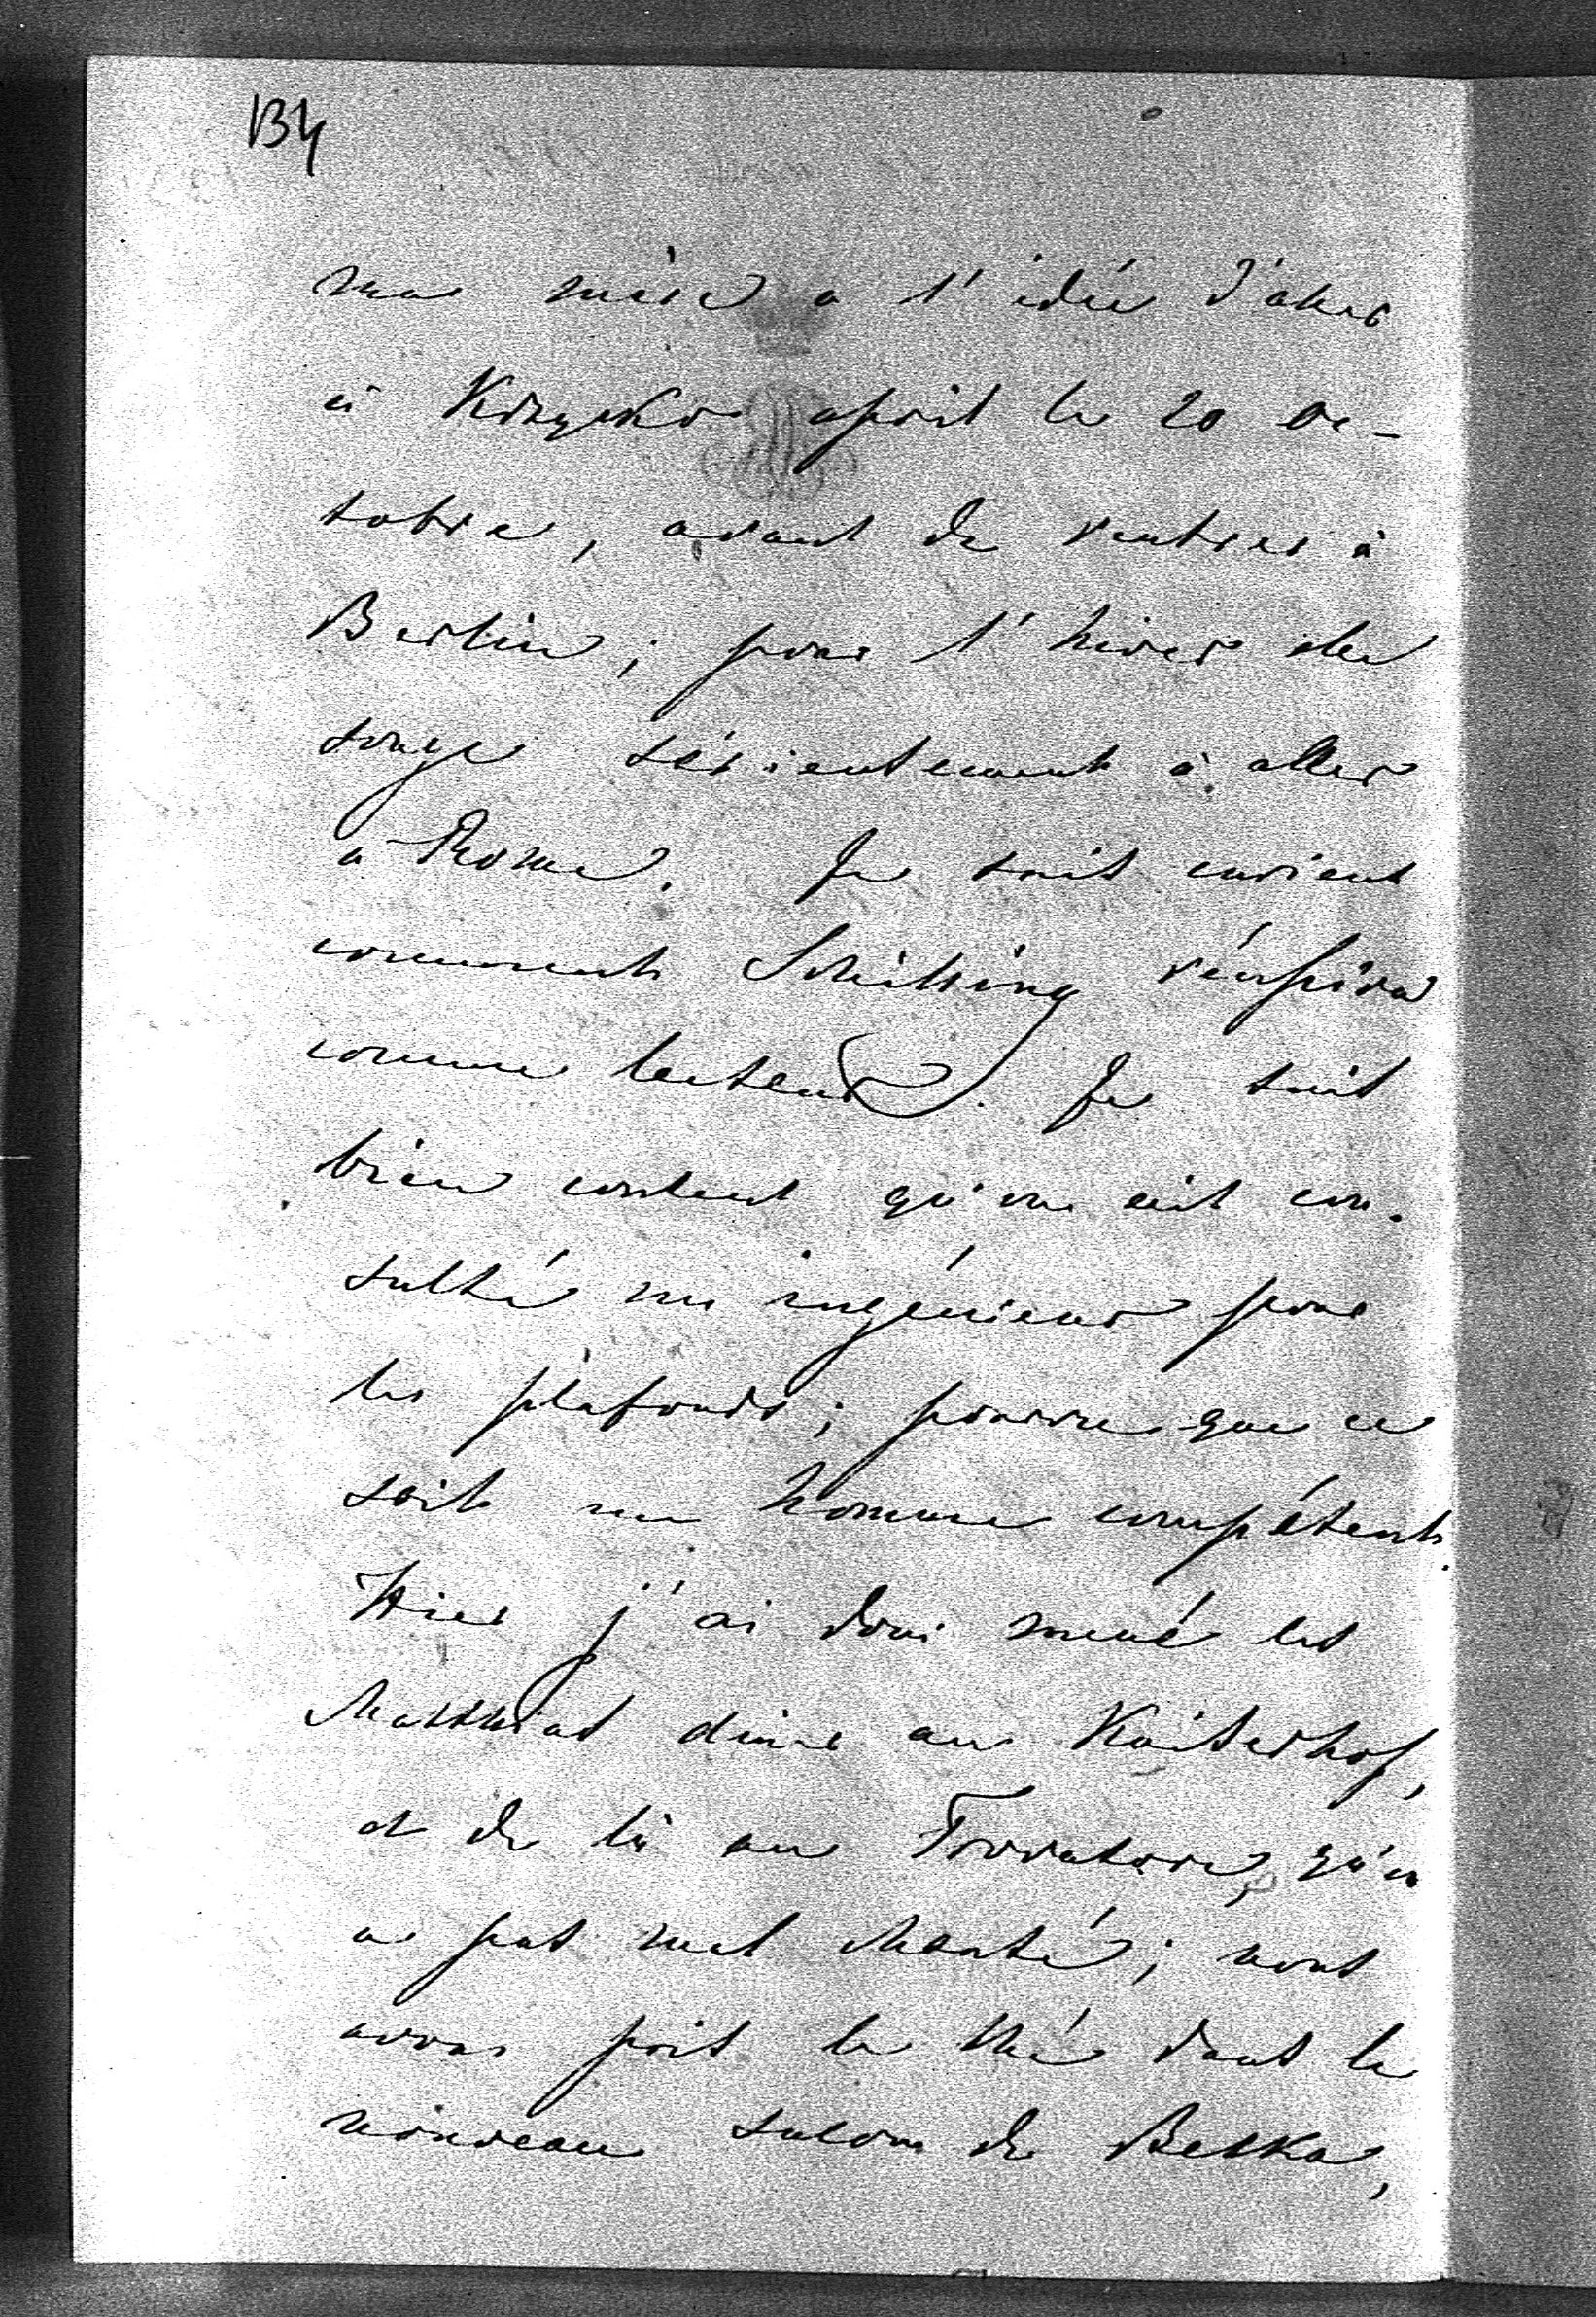 134
ma mère a l'idée d'aller
à après le 20 Oc-
tobre, avant de rentrer à
Berlin; pour l'hiver elle
songe sérieusement à aller
à Rome. Je suis curieux
comment Schilling réussira
comme lecteur. Je suis
bien content qu'on ait con-
sulté un ingénieur pour
les plafonds; pourvu que ce
soit un homme compétent.
Hier j'ai donc mené les
Matthias diner au Kaiserhof,
et de là au Trovatore, qu'on
a pas mal chanté; nous
avons pris le thé dans le
nouveau salon de Betka,